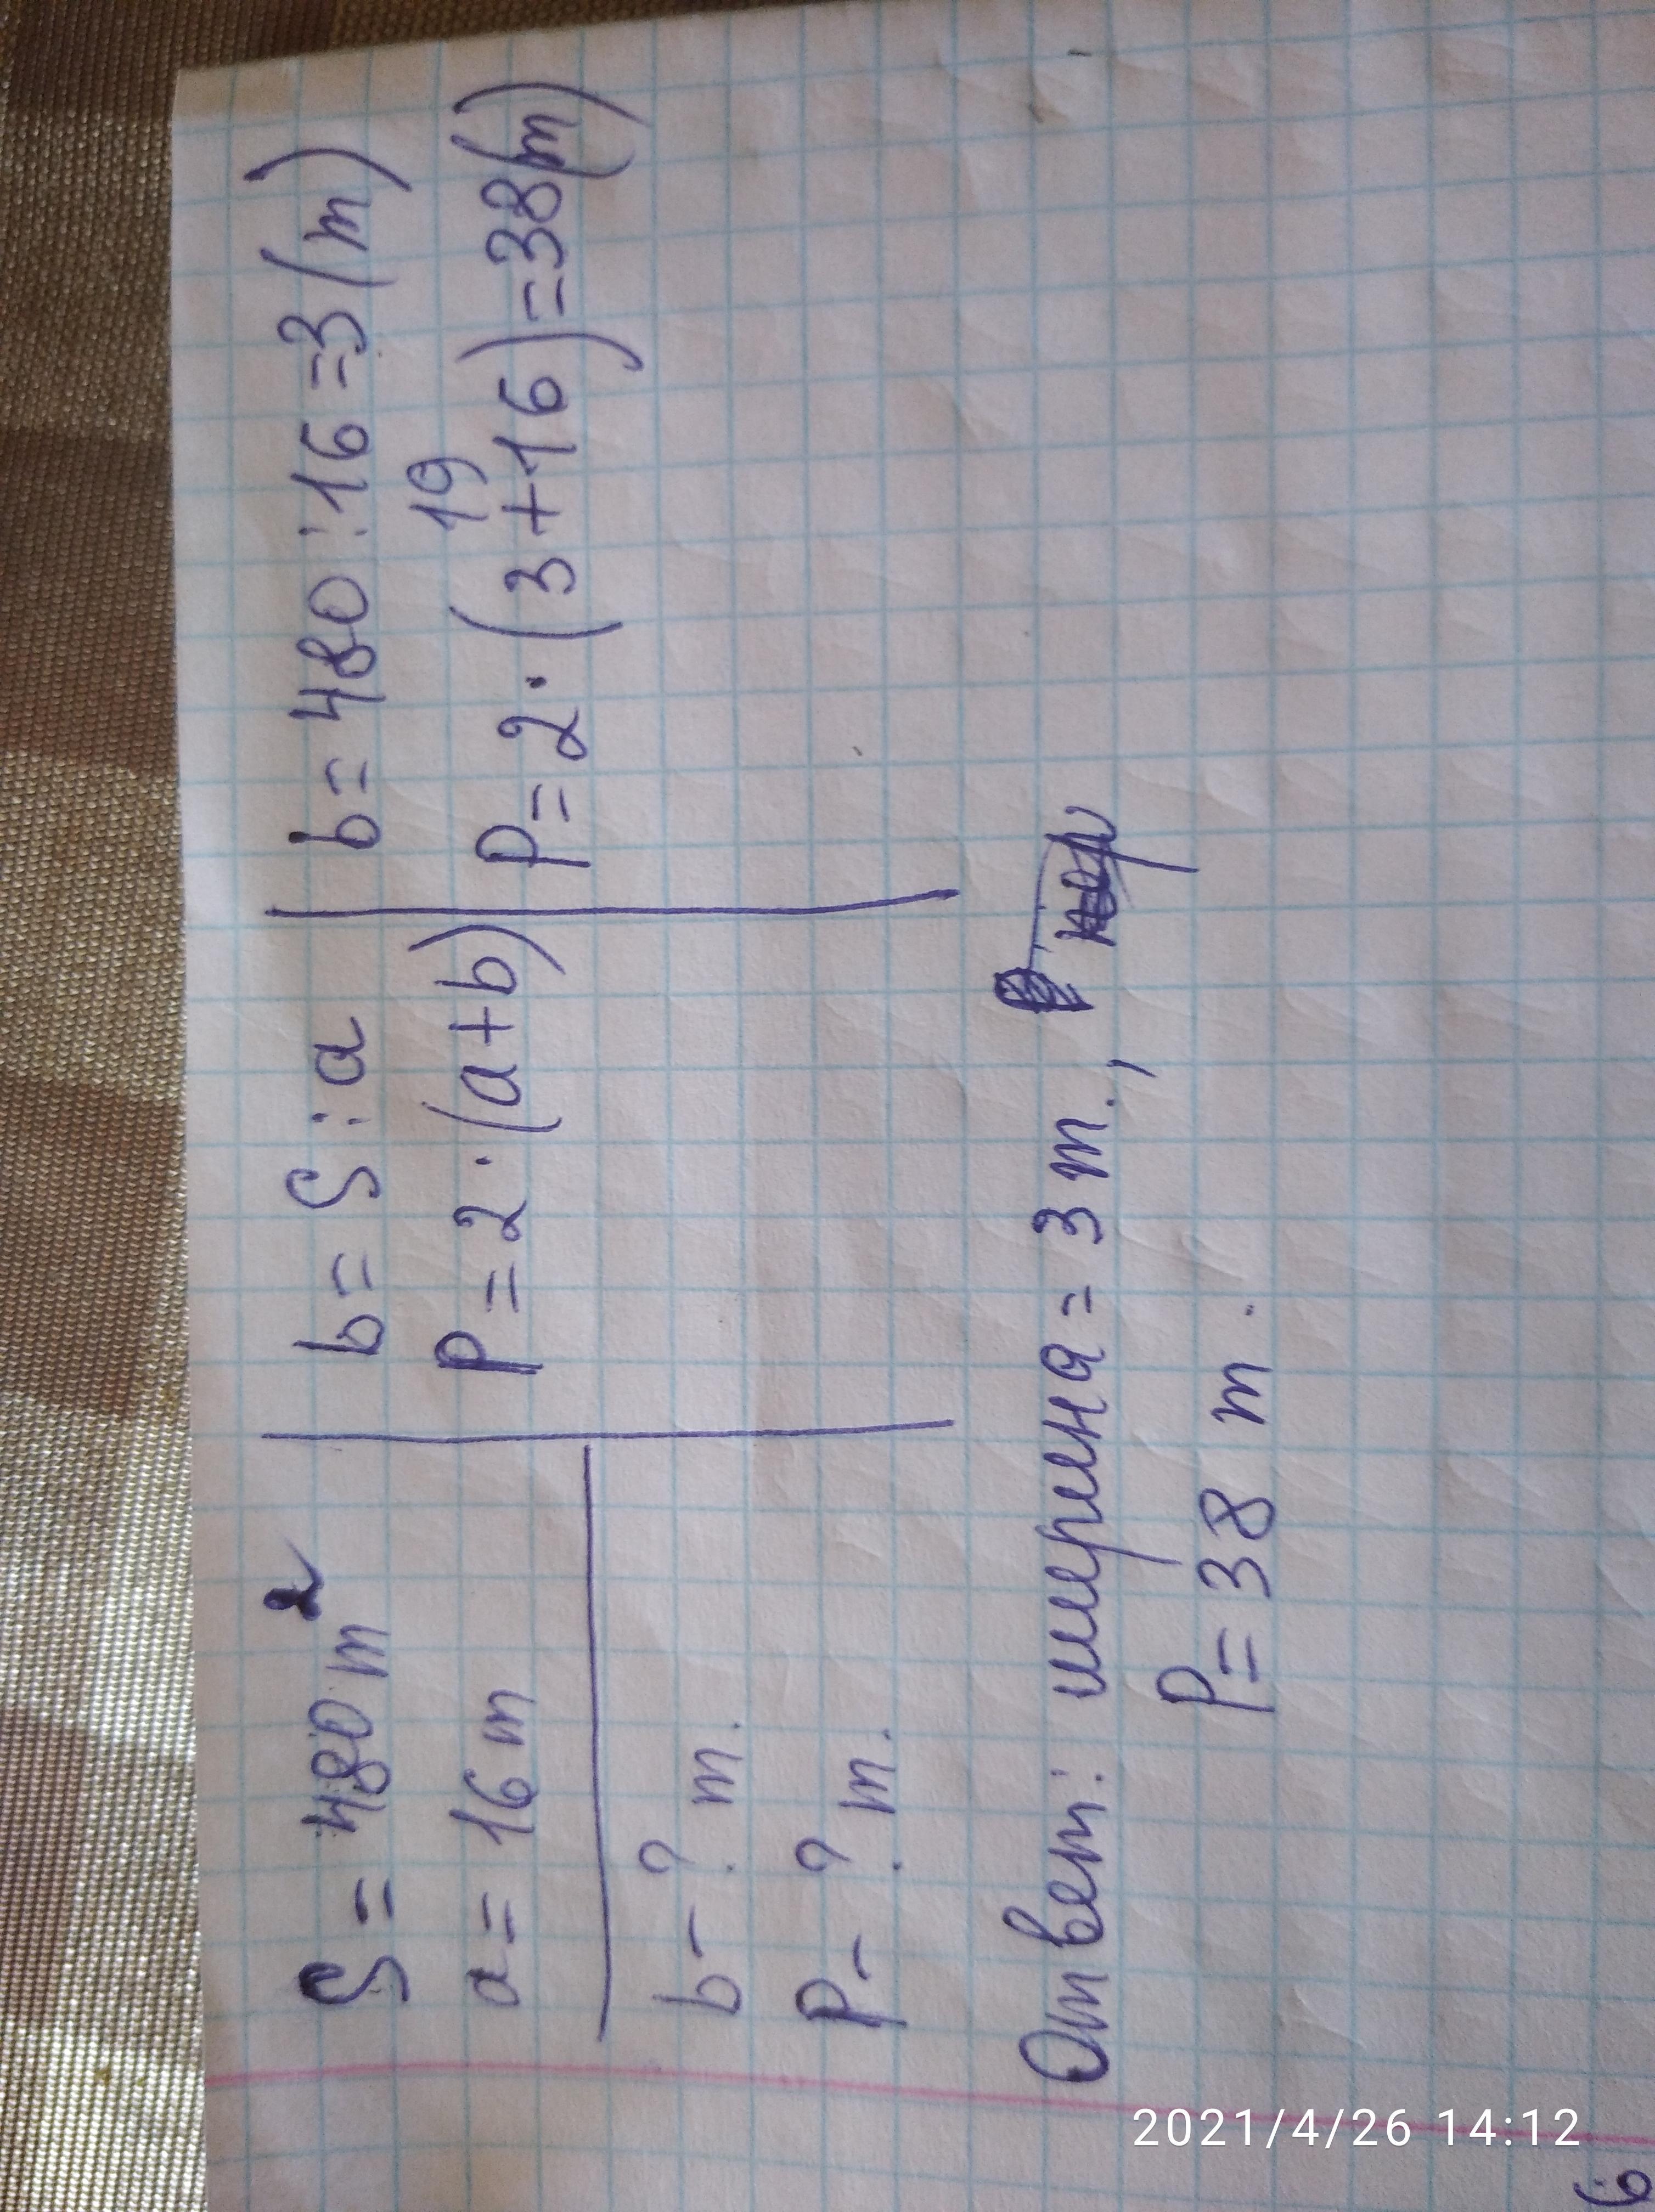 S = 480 m²
a = 16 m
b - ? m.
P - ? m.
b = S : a
P = 2 · (a + b)
b = 480 : 16 = 3 (m)
19
P = 2 · (3 + 16) = 38 (m)
Ответ: ширина = 3 m.,
P = 38 m.
2021/4/26 14:12